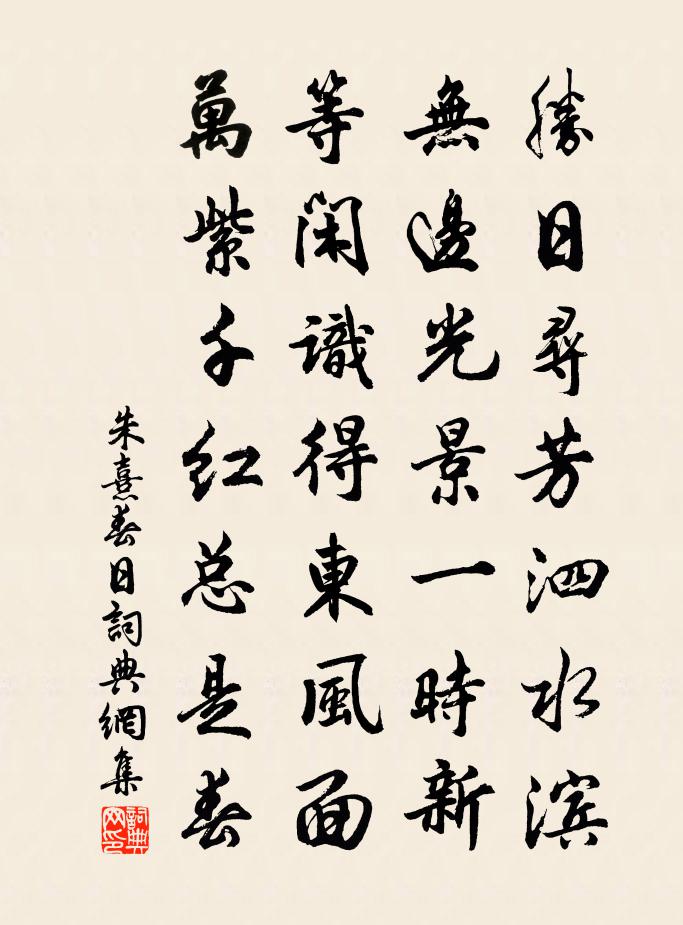 勝日尋芳泗水滨
無邊光景一時新
等閑識得東風面
萬紫千红总是春
朱熹春日詞典網集
詞典网印